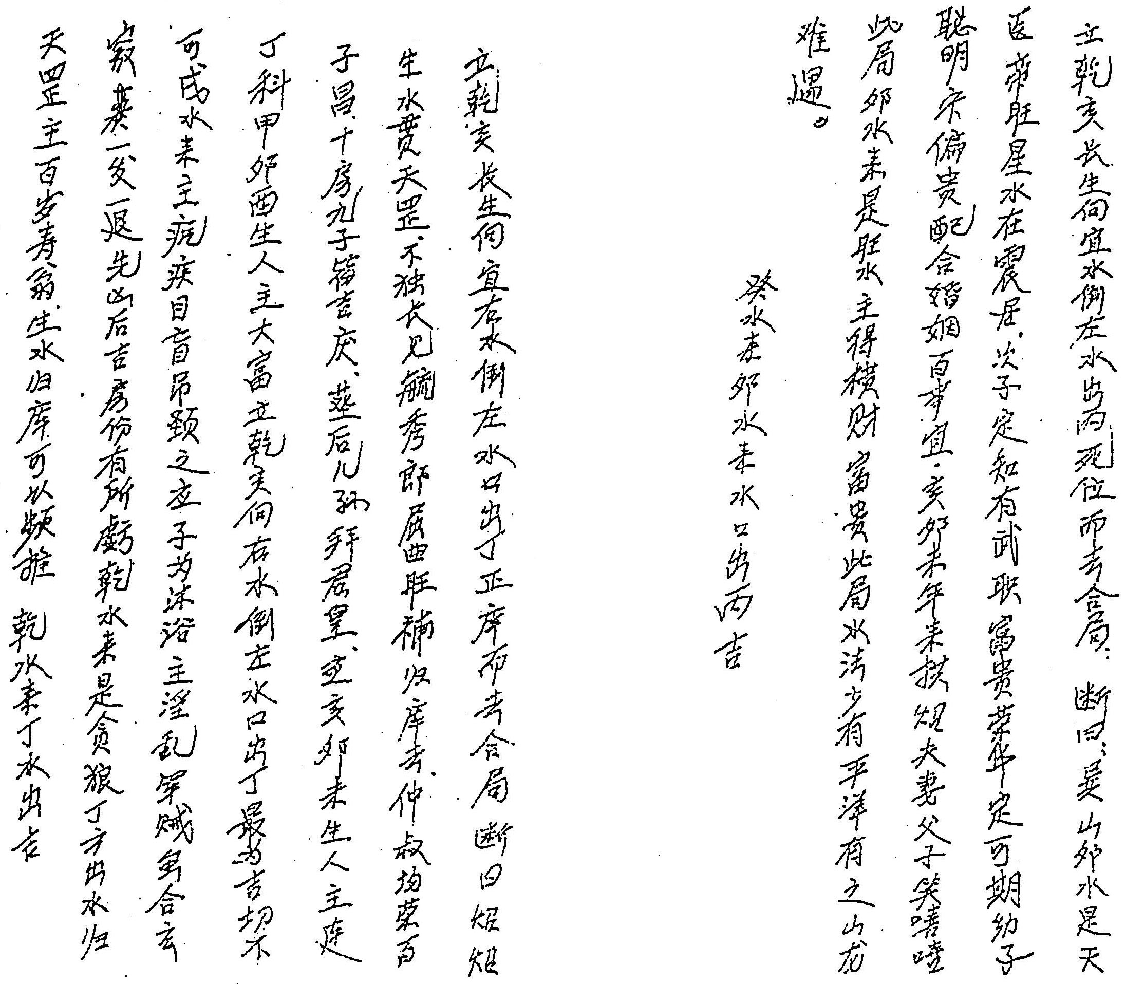 立乾亥长生向宜水倒左水出丙死位而去合局：断曰：巽山卯水是天
医帝旺星水在震居.次子定知有武职富贵荣华定可期幼子
聪明宗偏贵配合婚姻百事宜.亥卯未年来拱烜夫妻父子笑嘻嘻
此局卯水来是旺水主得横财富贵此局水法少有平洋有之山龙
难遇。
癸水走卯水来水口出丙吉
立乾亥长生向宜右水倒左水口出丁正库而去合局断曰烜烜
生水贯天罡、不独长儿毓秀郎居曲旺補归库去、仲叔均荣百
子昌、十房九子篇吉庆、莲后儿孙拜君皇、立亥卯未生人主连
丁科甲卯酉生人主大富立乾亥向右水倒左水口出丁最为吉切不
可戌水来主疯疾目盲吊颈之应子为沐浴主淫乱军贼多合玄
窍爽一发一退先凶后吉房份有所虧乾水来是贪狼丁方出水归
天罡主百岁寿翁、生水归库可以频推 乾水来丁水出吉